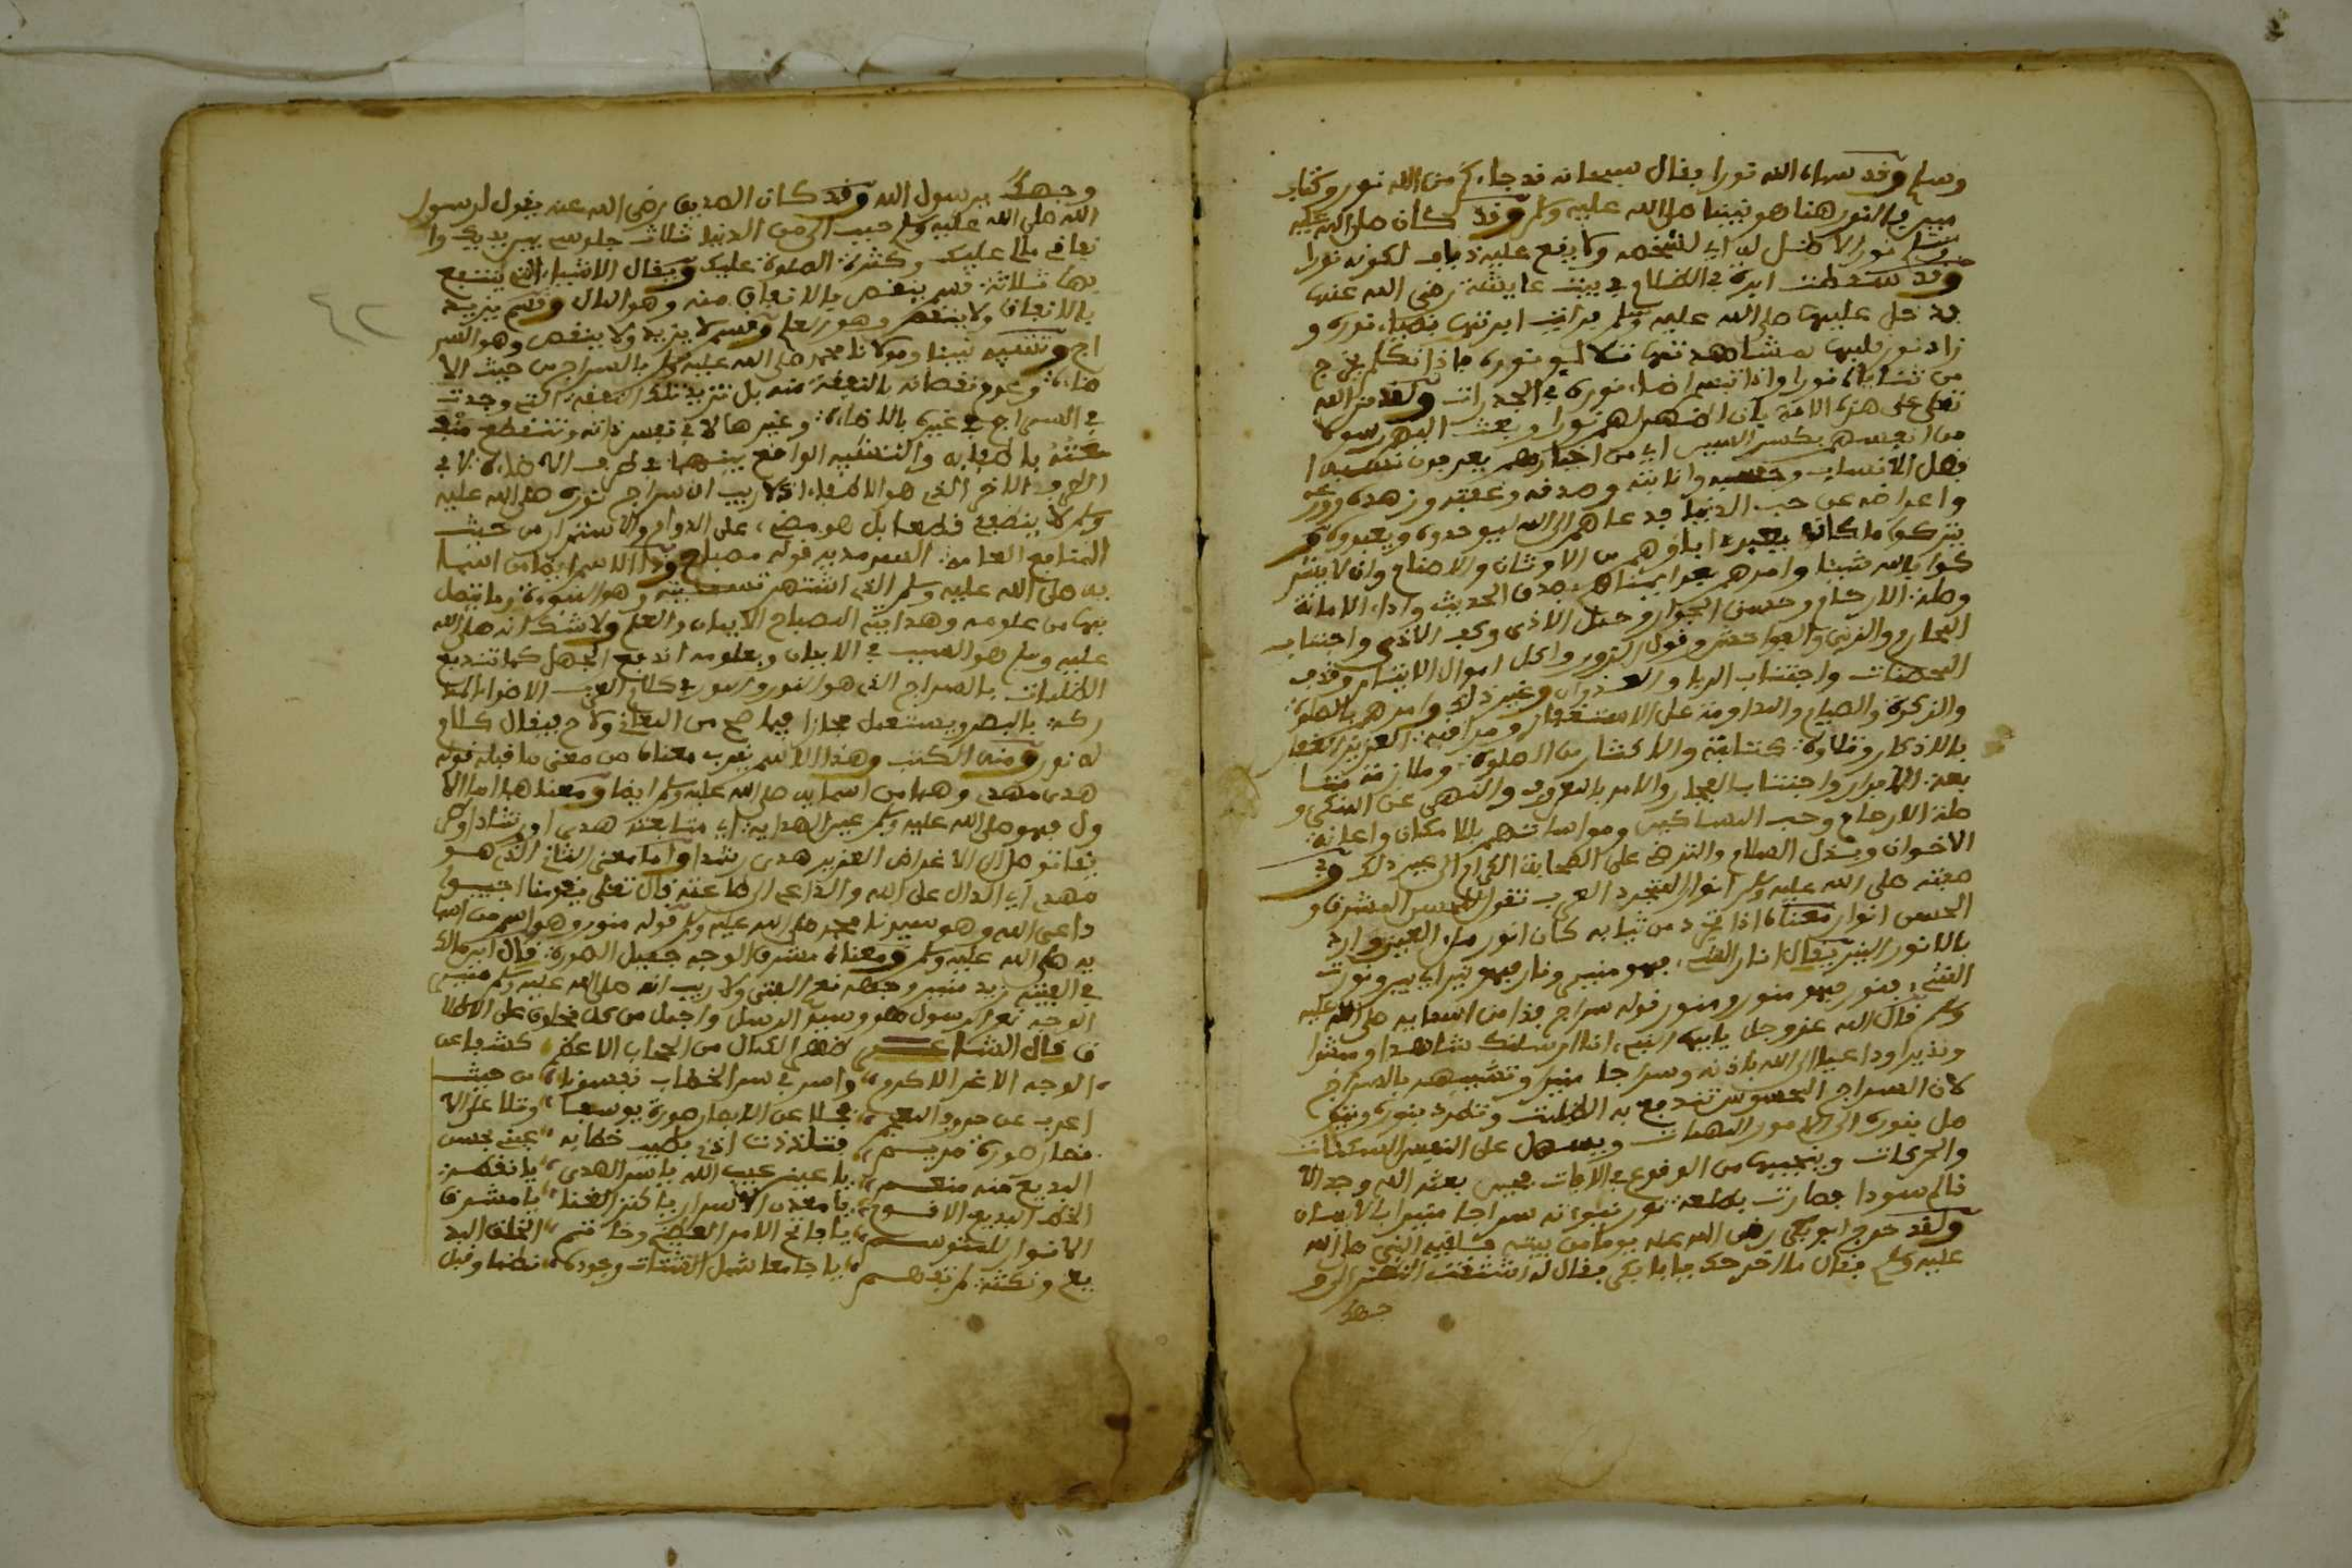 وسلم وقد سماه الله نورا بقال سبحانه قد جاءكم من الله نور وكتاب
مبين بالنور هنا هو نبينا صلى الله عليه وسلم وقد كان صلى الله عليه
وسلم نورا لا ظل له اي لشخصه ولا يقع عليه ذباب لكونه نورا
وقد سقطت ابرة في الظلام في بيت عايشة رضي الله عنها
فدخل عليها صلى الله عليه وسلم فرات ابرتها بضياء نوره و
زاد نور قلبها بمشاهدتها نوره فاذا تكلم يخرج
من ثناياه نورا واذا تبسم اضاء نوره في الجدرات ولقد من الله
تعلى على هذه الامة بان اظهر لهم نورا وبعث اليهم رسولا
من انفسهم بكسر السين اي من اخيارهم يعرفون نسبه ا
فضل الانساب وحسبه وامانته وصدقه وعفته وزهده وورعه
واعراضه عن حب الدنيا فدعاهم الى الله ليوحدوه ويعبدوه و
يتركوا ما كان يعبد اباؤهم من الاوثان والاصنام وان لا يشر
كوا بالله شيئا وامرهم بعد ايمانهم بصدق الحديث واداء الامانة
وصلة الارحام وحسن الجوار وحمل الاذى وكف الاذى واجتناب
المحارم والزنى والفواحش وقول الزور واكل اموال الايتام وقذف
المحصنات واجتناب الربا والعدوان وغير ذلك وامرهم بالصلوة
والزكوة والصيام والمداومة على الاستغفار ومراقبة العزيز الغفار
بالاذكار وتلاوة كتابه والاكثار من الصلوة وملازمة متا
بعة الابرار واجتناب الفجار والامر بالمعروف والنهي عن المنكر و
صلة الارحام وحب المساكين ومواساتهم بالامكان واعانة
الاخوان وبذل السلام والترضي على الصحابة الكرام الى غير ذلك وفي
صفته صلى الله عليه وسلم انوار المتجرد العرب تقول للحسن المشرق و
الحسن انوار معناه اذا تجرد من ثيابه كان انور ملء العين واراد
بالانور النير يقال انار الشيء فهو منير ونار فهو نير اي بين ونورت
الشيء فنور فهو منور ومنور قوله سراج فذا من اسمايه صلى الله عليه
وسلم قال الله عز وجل يايها النبي انا ارسلنك شاهدا ومبشرا
ونذيرا وداعيا الى الله باذنه وسراجا منيرا وتشبيهه بالسراج
لان السراج المحسوس تندفع به الظلمت وتطرد بنوره ويتو
صل بنوره الى الامور المهمات ويسهل على النفس السكنات
والحركات وينجيها من الوقوع في الافات فحين بعثه الله وجد الا
فاق سودا فصارت بطلعة نور نبوته سراجا منيرا بالايمان
ولقد خرج ابو بكر رضي الله عنه يوما من بيته فلقيه النبي صلى الله
عليه وسلم فقال ما اخرجك يابا بكر فقال له اشتقت النظر الى و
جهك
وجهك يرسول الله وقد كان الصديق رضي الله عنه يقول لرسول
الله صلى الله عليه وسلم حبب الي من الدنيا ثلاث جلوسي بين يديك وا
نفاقي مالي عليك وكثرة الصلوة عليك ويقال الاشياء التي ينتفع
بها ثلاثة قسم ينقص بالانفاق منه وهو المال وقسم يزيد
بالانفاق ولا ينقص وهو العلم وقسم لا يزيد ولا ينقص وهو السر
اج وتشبيه نبينا ومولانا محمد صلى الله عليه وسلم بالسراج من حيث الا
ضاءة وعدم نقصانه بالنفقة منه بل تزيد تلك النفقة التي وجدت
في السراج في غيره بالاضاءة وغيرها لا في نفس ذاته وتنقطع منفـ
عته باطفايه والتشبيه الواقع بينهما في طرف الاضاءة لا في
الطرف الاخر الذي هو الاطفاء اذ لا ريب ان سراج نوره صلى الله عليه
وسلم لا ينطفي قطعا بل هو مضيء على الدوام والاستمرار من حيث
المنافع العامة السرمدية قوله مصباح وذا الاسم ايضا من اسما
يه صلى الله عليه وسلم الذي اشتهر تسميته وهو النبوة وما يتصل
بها من علومه وهدايته المصباح الايمان والعلم ولا شك انه صلى الله
عليه وسلم هو السبب في الايمان وبعلومه اندفع الجهل كما تندفع
الظلمات بالسراج الذي هو النور والنور في كلام العرب الاضواء المد
ركة بالبصر ويستعمل مجازا فيما صح من المعاني ولاح فيقال كلام
له نور ومنه الكتب وهذا الاسم يقرب معناه من معنى ما قبله قوله
هدى مهدي وهما من اسمايه صلى الله عليه وسلم ايضا ومعناهما اما الا
ول فهو صلى الله عليه وسلم عين الهداية اي متابعته هدى او رشاد او كل
يهدي اي الدال على الله والداعي الى طاعته قال تعلى يقومنا اجيبوا
داعي الله وهو سيدنا محمد صلى الله عليه وسلم قوله منور وهو اسم من اسما
يه صلى الله عليه وسلم ومعناه مشرق الوجه جميل الصورة قال ابن مالك
في الفيته زيد منير وجهه نعم الفتى ولا ريب انه صلى الله عليه وسلم منير
الوجه نعم الرسول هو وسيد الرسل واجمل من كل مخلوق على الاطلا
ق قال الشاعر ظهر الكمال من الحجاب الاعظم كشفا عن
الوجه الاغر الاكرم واسر في سر الخطاب نفوسنا من حيث
اعرب عن حروف المعجم فجلا عن الابصار صورة يوسف وتلا على الا
سماع صورة مريم فتلذذت اذني بطيب خطابه عيني بحسن
البديع منه منعم يا عين عين الله ياسر الهدى يا نقطة
الخط البديع الاقوم يا معدن الاسرار يا كنز الغنا يا مشرق
الانوار للمتوسم يا فاتح الامر العظيم وخاتم الخلق البد
يع ونكتة لم تفهم يا جامعا شمل الشتات وجوده نظما وقبل
٤٢